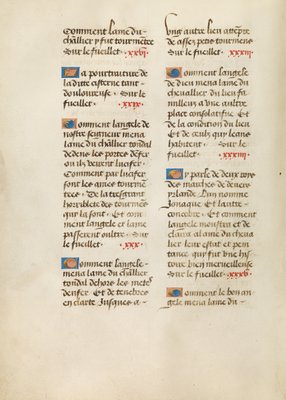 Comment lame du
chꝉlier y fut tourmẽtee
Sur le fueillet . xxvi.
La pourtraiture de
la ditte cisterne tant
douloureuse . Sur le
fueillet . xxix.
Comment langele de
nostre seigneur mena
lame du chꝉlier tondal
dedens les portes dẽfer
ou ilz veirent lucifer.
Comment par lucifer
sont les ames tourmẽ
tees . De la tresgrant
horribleté des tourmẽs
qui la sont . Et com
ment langele et lame
passerent oultre . Sur
le fueillet . xxx.
Comment langele
mena lame du chꝉlier
tondal dehors les mett
denfer . Et de tenebres
en clarte Jusques a
vng autre lieu attẽpte
de assez petis tourmens
Sur le fueillet . xxxiii.
Comment langele
de dieu mena lame du
cheuallier du lieu fa
milleux a vne aultre
place consolatiue . Et
de la condition du lieu
Et de ceulx qui leans
habitent . Sur le
fueillet . xxxiiii.
Cy parle de deux roys
des marches de deuers
yrlande Lun nomme
Jonaque Et lautre
concobre . Et comment
langele monstra et de
claira al ame du cheua
lier leur estat et peni
tance qui fut vne his
toire bien merueilleuse
Sur le fueillet . xxxv.
Comment le bon an
gele mena lame du